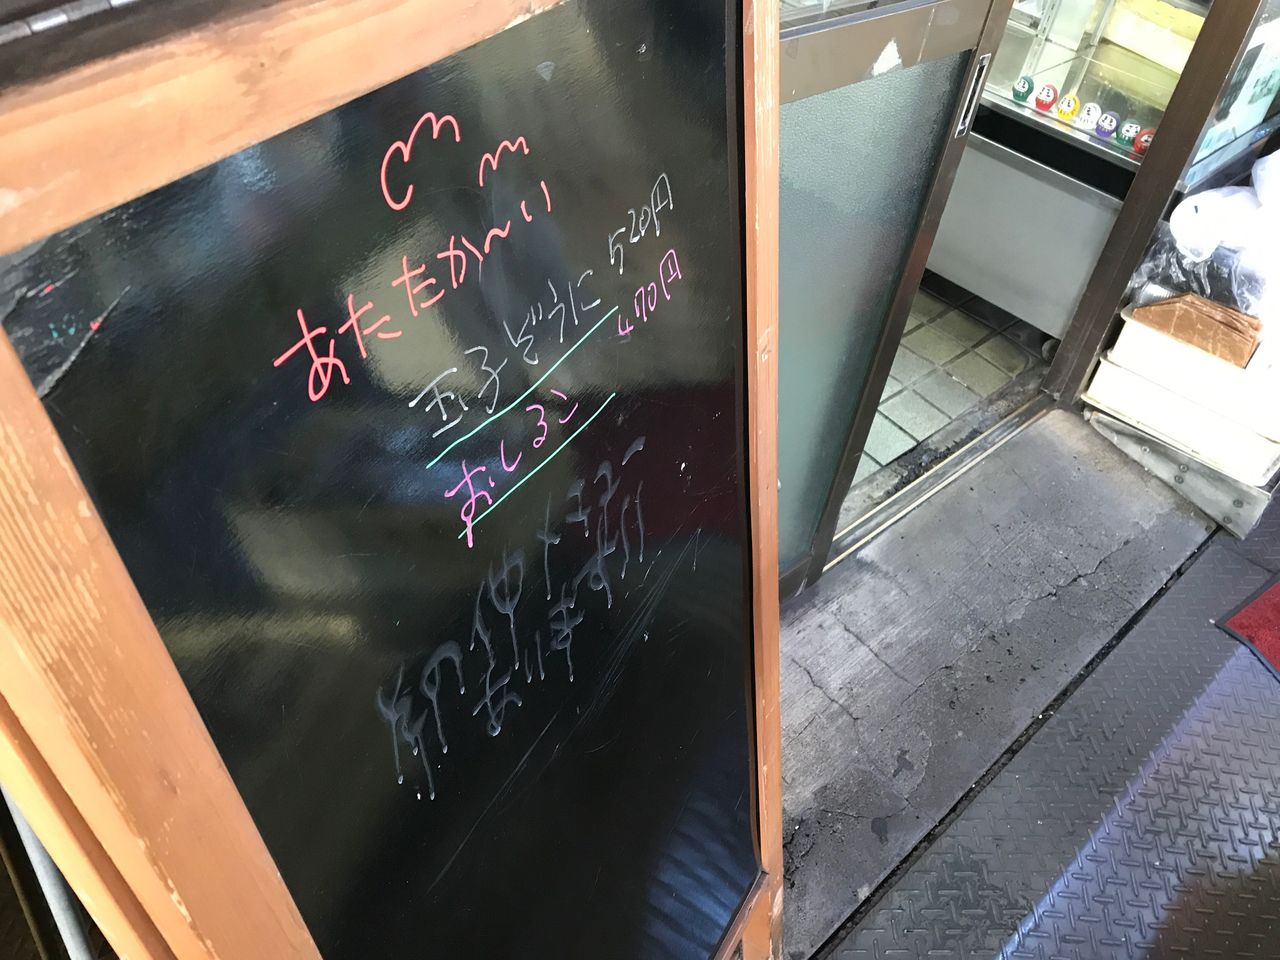 あたたか〜い
玉子ぞうに 520円
おしるこ 470円
あります!!